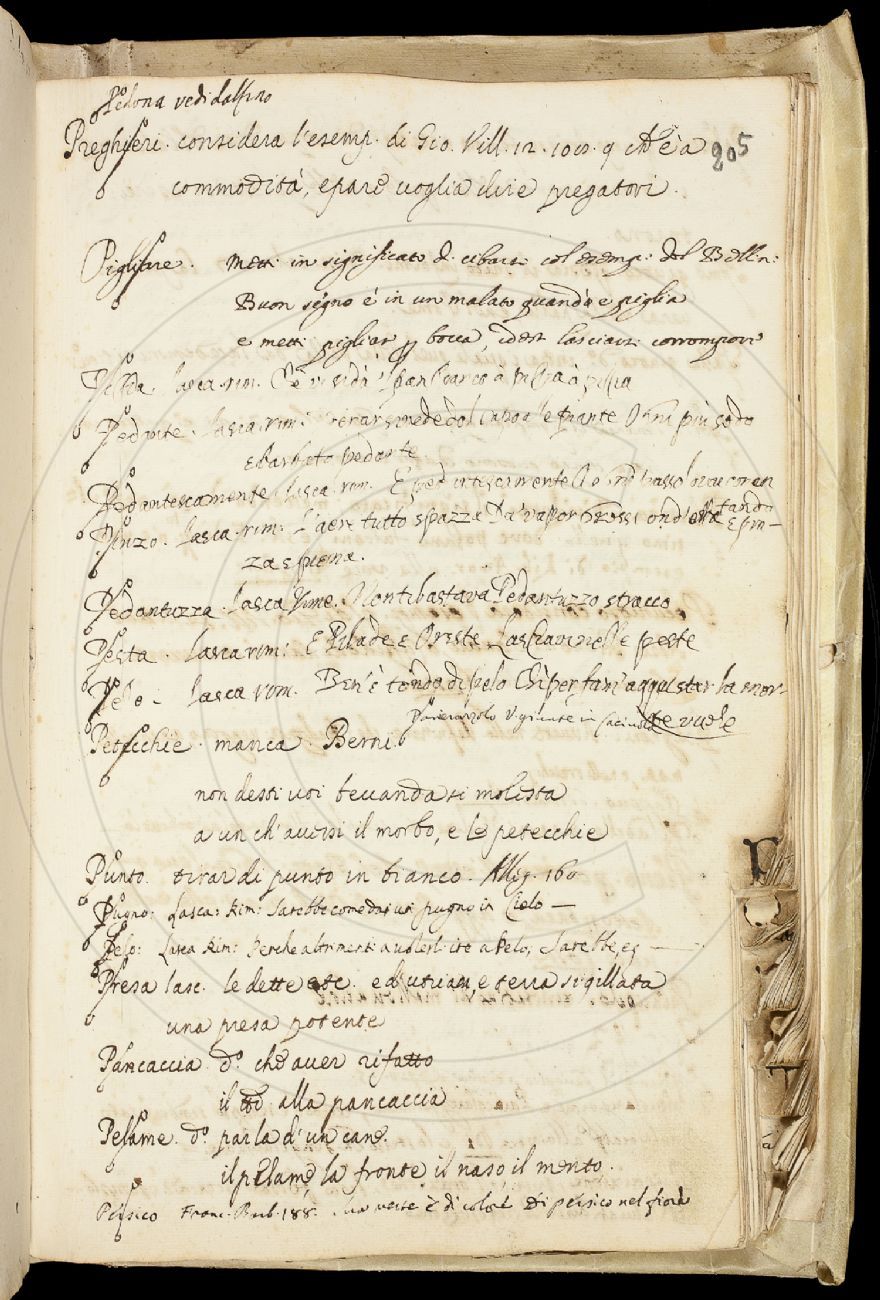 Pedona vedi dalfino
205
Preghieri. considera l'esemp. di Gio. Vill. 12. 100. 9 che è a
commodità, e pare voglia dire pregatori.
Pigliare. Metti in significato di cibarsi col esemp: del Bellin:
Buon segno è in un malato quand'e piglia
e metti pigliar p bocca, idest lasciarsi corrompere
Lasca. rim.
Pedante. Lasca. rim: e piante Ogni più sodo
e barbato pedante.
Pedantescamente. Lasca. rim. E pedantescamente
Pinzo. Lasca. rim: L'aere tutto spazza Da' vapor grossi ond'era E pin-
za e piena.
Pedantuzza. Lasca Rime. Non ti bastava Pedantuzzo stracco
Pesta. Lasca rim: E Pilade e Oreste Lasciaron nelle peste
Pelo. Lasca rim. Ben'è tondo di pelo Chi per fam' acquistar la mor-
te vuole
Petecchie. manca. Berni.
non desti voi bevanda sì molesta
a un ch'avessi il morbo, e le petecchie
Punto. tirar di punto in bianco. Alleg. 160
Pugno: Lasca: Rim: Sarebbe come dar un pugno in Cielo —
Pelo: Lasca Rim: Perche altrimenti a pelo, Sarebbe, eg —
Presa lasc. le dette etc. ed utriaca, e terra sigillata
una presa potente
Pancaccia. d.º che aver rifatto
il alla pancaccia
Pelame. d.º parla d'un cane.
il pelame, la fronte il naso, il mento.
Persico Franc. Barb. 188. veste è di color di persico nel fiore